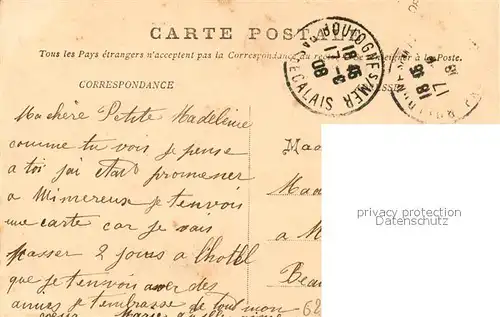 CARTE POSTALE
Tous les Pays étrangers n'acceptent pas la Correspondance au se renseigner à la Poste.
CORRESPONDANCE
BOULOGNE S/MER
PAS DE CALAIS
18 45
17 -6
08
18 45
17
Ma chère Petite Madeleine
comme tu vois je pense
a toi j'ai était promener
a Wimereux je t'envois
une carte car je vais
passer 2 jours a l'hotel
que je t'envois avec des
amies je t'embrasse de tout mon
Maa
Maa
a M
Beau
62
privacy protection
watermark